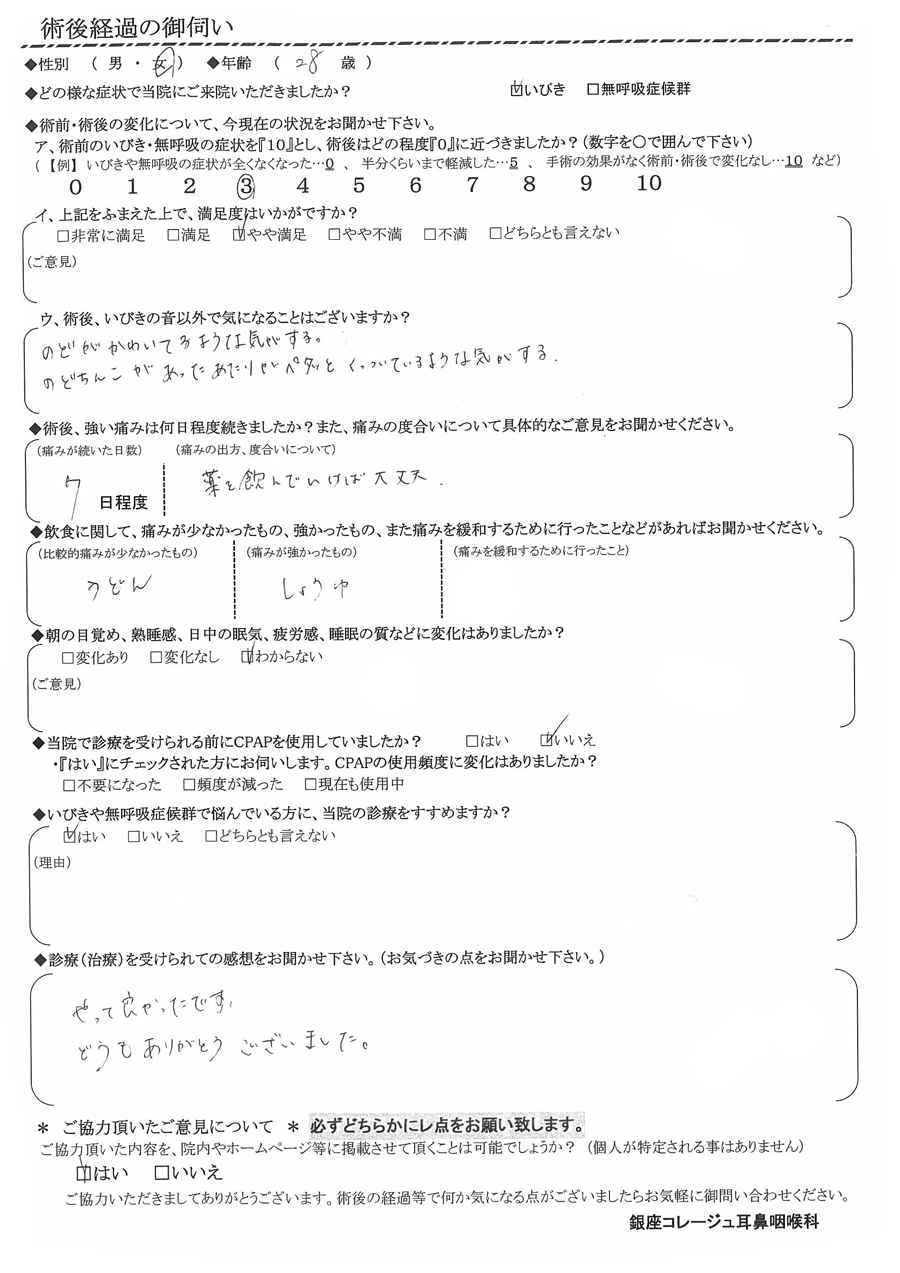 術後経過の御伺い
◆性別 （ 男 ・ 女 ） ◆年齢 （ 28 歳 ）
◆どの様な症状で当院にご来院いただきましたか？ ☑いびき □無呼吸症候群
◆術前・術後の変化について、今現在の状況をお聞かせ下さい。
ア、術前のいびき・無呼吸の症状を『10』とし、術後はどの程度『0』に近づきましたか？（数字を〇で囲んで下さい）
（ 【例】 いびきや無呼吸の症状が全くなくなった…0 、 半分くらいまで軽減した…5 、 手術の効果がなく術前・術後で変化なし…10 など）
0 1 2 3 4 5 6 7 8 9 10
イ、上記をふまえた上で、満足度はいかがですか？
□非常に満足 □満足 ☑やや満足 □やや不満 □不満 □どちらとも言えない
（ご意見）
ウ、術後、いびきの音以外で気になることはございますか？
のどがかわいてるような気がする。
のどちんこがあったあたりがペタッとくっついているような気がする.
◆術後、強い痛みは何日程度続きましたか？また、痛みの度合いについて具体的なご意見をお聞かせください。
（痛みが続いた日数） （痛みの出方、度合いについて）
7 日程度 薬を飲んでいけば大丈夫.
◆飲食に関して、痛みが少なかったもの、強かったもの、また痛みを緩和するために行ったことなどがあればお聞かせください。
（比較的痛みが少なかったもの） （痛みが強かったもの） （痛みを緩和するために行ったこと）
うどん しょうゆ
◆朝の目覚め、熟睡感、日中の眠気、疲労感、睡眠の質などに変化はありましたか？
□変化あり □変化なし ☑わからない
（ご意見）
◆当院で診療を受けられる前にCPAPを使用していましたか？ □はい ☑いいえ
・『はい』にチェックされた方にお伺いします。CPAPの使用頻度に変化はありましたか？
□不要になった □頻度が減った □現在も使用中
◆いびきや無呼吸症候群で悩んでいる方に、当院の診療をすすめますか？
☑はい □いいえ □どちらとも言えない
（理由）
◆診療（治療）を受けられての感想をお聞かせ下さい。（お気づきの点をお聞かせ下さい。）
やって良かったです。
どうもありがとうございました。
＊ ご協力頂いたご意見について ＊ 必ずどちらかにレ点をお願い致します。
ご協力頂いた内容を、院内やホームページ等に掲載させて頂くことは可能でしょうか？ （個人が特定される事はありません）
☑はい □いいえ
ご協力いただきましてありがとうございます。術後の経過等で何か気になる点がございましたらお気軽に御問い合わせください。
銀座コレージュ耳鼻咽喉科